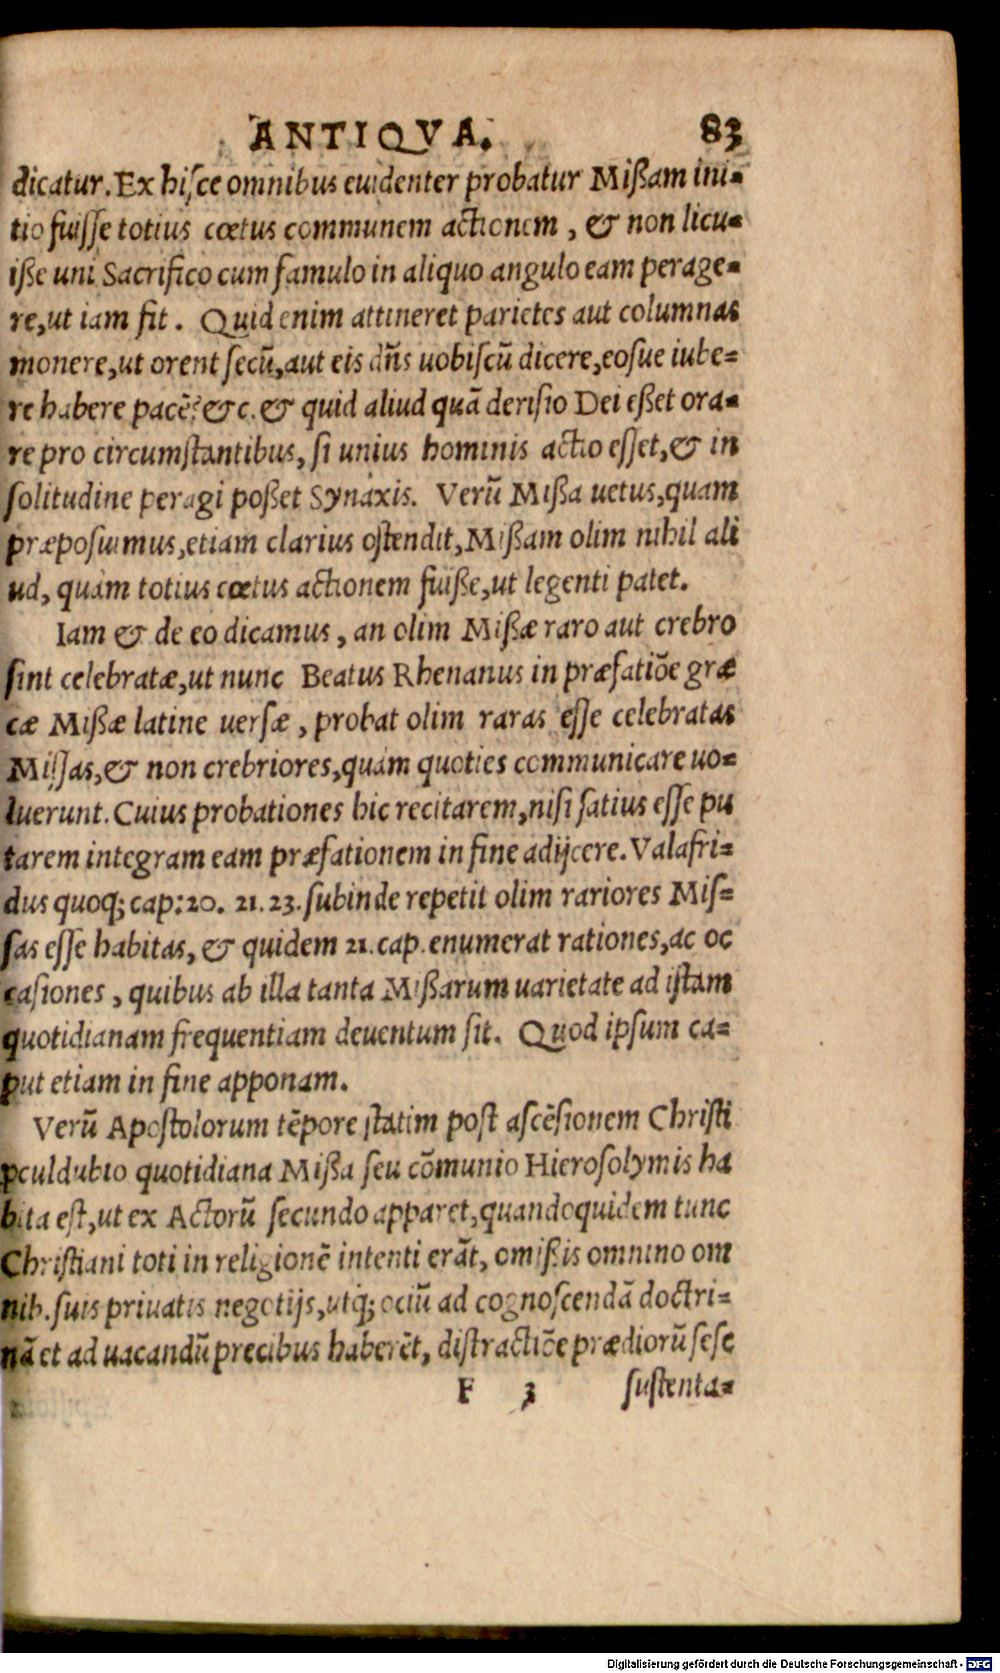 ANTIQVA. 83
dicatur. Ex hisce omnibus euidenter probatur Mißam ini-
tio fuisse totius cœtus communem actionem, & non licu-
iße uni Sacrifico cum famulo in aliquo angulo eam perage-
re, ut iam fit. Quid enim attineret parietes aut columnas
monere, ut orent secũ, aut eis dñs uobiscũ dicere, eosue iube-
re habere pacẽ? &c. & quid aliud quã derisio Dei eßet ora-
re pro circumstantibus, si unius hominis actio esset, & in
solitudine peragi poßet Synaxis. Verũ Mißa uetus, quam
præposuimus, etiam clarius ostendit, Mißam olim nihil ali
ud, quàm totius cœtus actionem fuiße, ut legenti patet.
Iam & de eo dicamus, an olim Mißæ raro aut crebro
sint celebratæ, ut nunc Beatus Rhenanus in præfatiõe græ
cæ Mißæ latine uersæ, probat olim raras esse celebratas
Missas, & non crebriores, quàm quoties communicare uo-
luerunt. Cuius probationes hic recitarem, nisi satius esse pu
tarem integram eam præfationem in fine adijcere. Valafri-
dus quoq; cap: 20. 21. 23. subinde repetit olim rariores Mis-
sas esse habitas, & quidem 21. cap. enumerat rationes, ac oc
casiones, quibus ab illa tanta Mißarum uarietate ad istam
quotidianam frequentiam deuentum sit. Quod ipsum ca-
put etiam in fine apponam.
Verũ Apostolorum tẽpore statim post ascẽsionem Christi
ꝓculdubio quotidiana Mißa seu cõmunio Hierosolymis ha
bita est, ut ex Actorũ secundo apparet, quandoquidem tunc
Christiani toti in religionẽ intenti erãt, omißis omnino om
nib. suis priuatis negotijs, utq; ociũ ad cognoscendã doctri-
nã et ad uacandũ precibus haberẽt, distractiõe prædiorũ sese
F 3 sustenta-
Digitalisierung gefördert durch die Deutsche Forschungsgemeinschaft - DFG